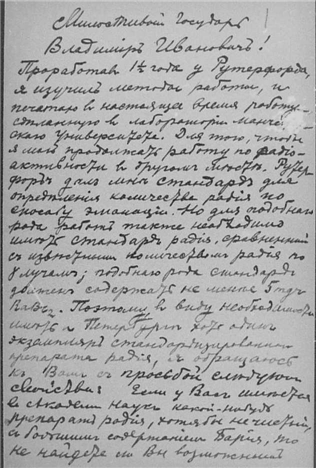 Милостивый Государь
Владимiръ Ивановичъ!
Проработавъ 1½ года у Рутерфорда,
я изучилъ методы работы, и
печатаю в настоящее время работу
сдѣланную в лабораторiи Манче-
скаго Университета. Для того, чтобы
я могъ продолжать работу по радiо-
активности в другомъ мѣстѣ, Рутер-
фордъ далъ мнѣ стандартъ для
опредѣленiя количества радiя по
способу эманацiи. Но для подобнаго
рода работъ также необходимо
имѣть стандартъ радiя, сравненный
съ извѣстнымъ количествомъ радiя по
γ лучамъ; подобнаго рода стандартъ
долженъ содержать не менѣе
Поэтому, в виду необходимости
имѣть в Петербургѣ хотя одинъ
экземпляръ стандартизированнаго
препарата радiя, я обращаюсь
къ Вамъ съ просьбой слѣдующаго
свойства: Если у Васъ имѣется
в Академiи Наукъ какой-нибудь
препаратъ радiя, хотя бы не чистый,
с большимъ содержанiемъ Барiя, то
не найдете ли Вы возможнымъ